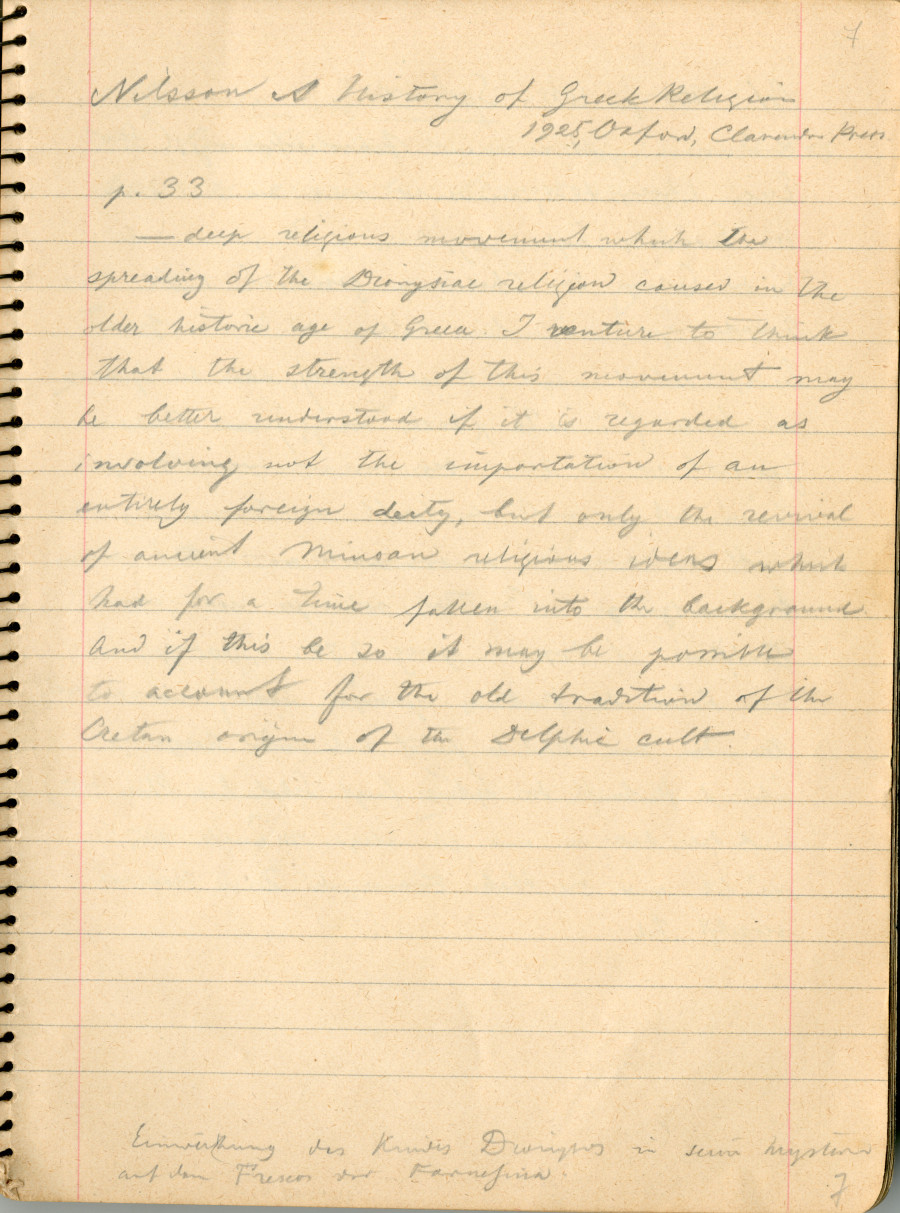 7
Nilsson A History of Greek Religion
1925, Oxford, Clarendon Press
p. 33
— deep religious movement which the
spreading of the Dionysiac religion caused in the
older historic age of Greece. I venture to think
that the strength of this movement may
be better understood if it is regarded as
involving not the importation of an
entirely foreign deity, but only the revival
of ancient Minoan religious ideas which
had for a time fallen into the background
And if this be so it may be possible
to account for the old tradition of the
Cretan origin of the Delphic cult.
des Kindes Dionysos in seine Mysterien
auf den Frescos der Farnesina.
7